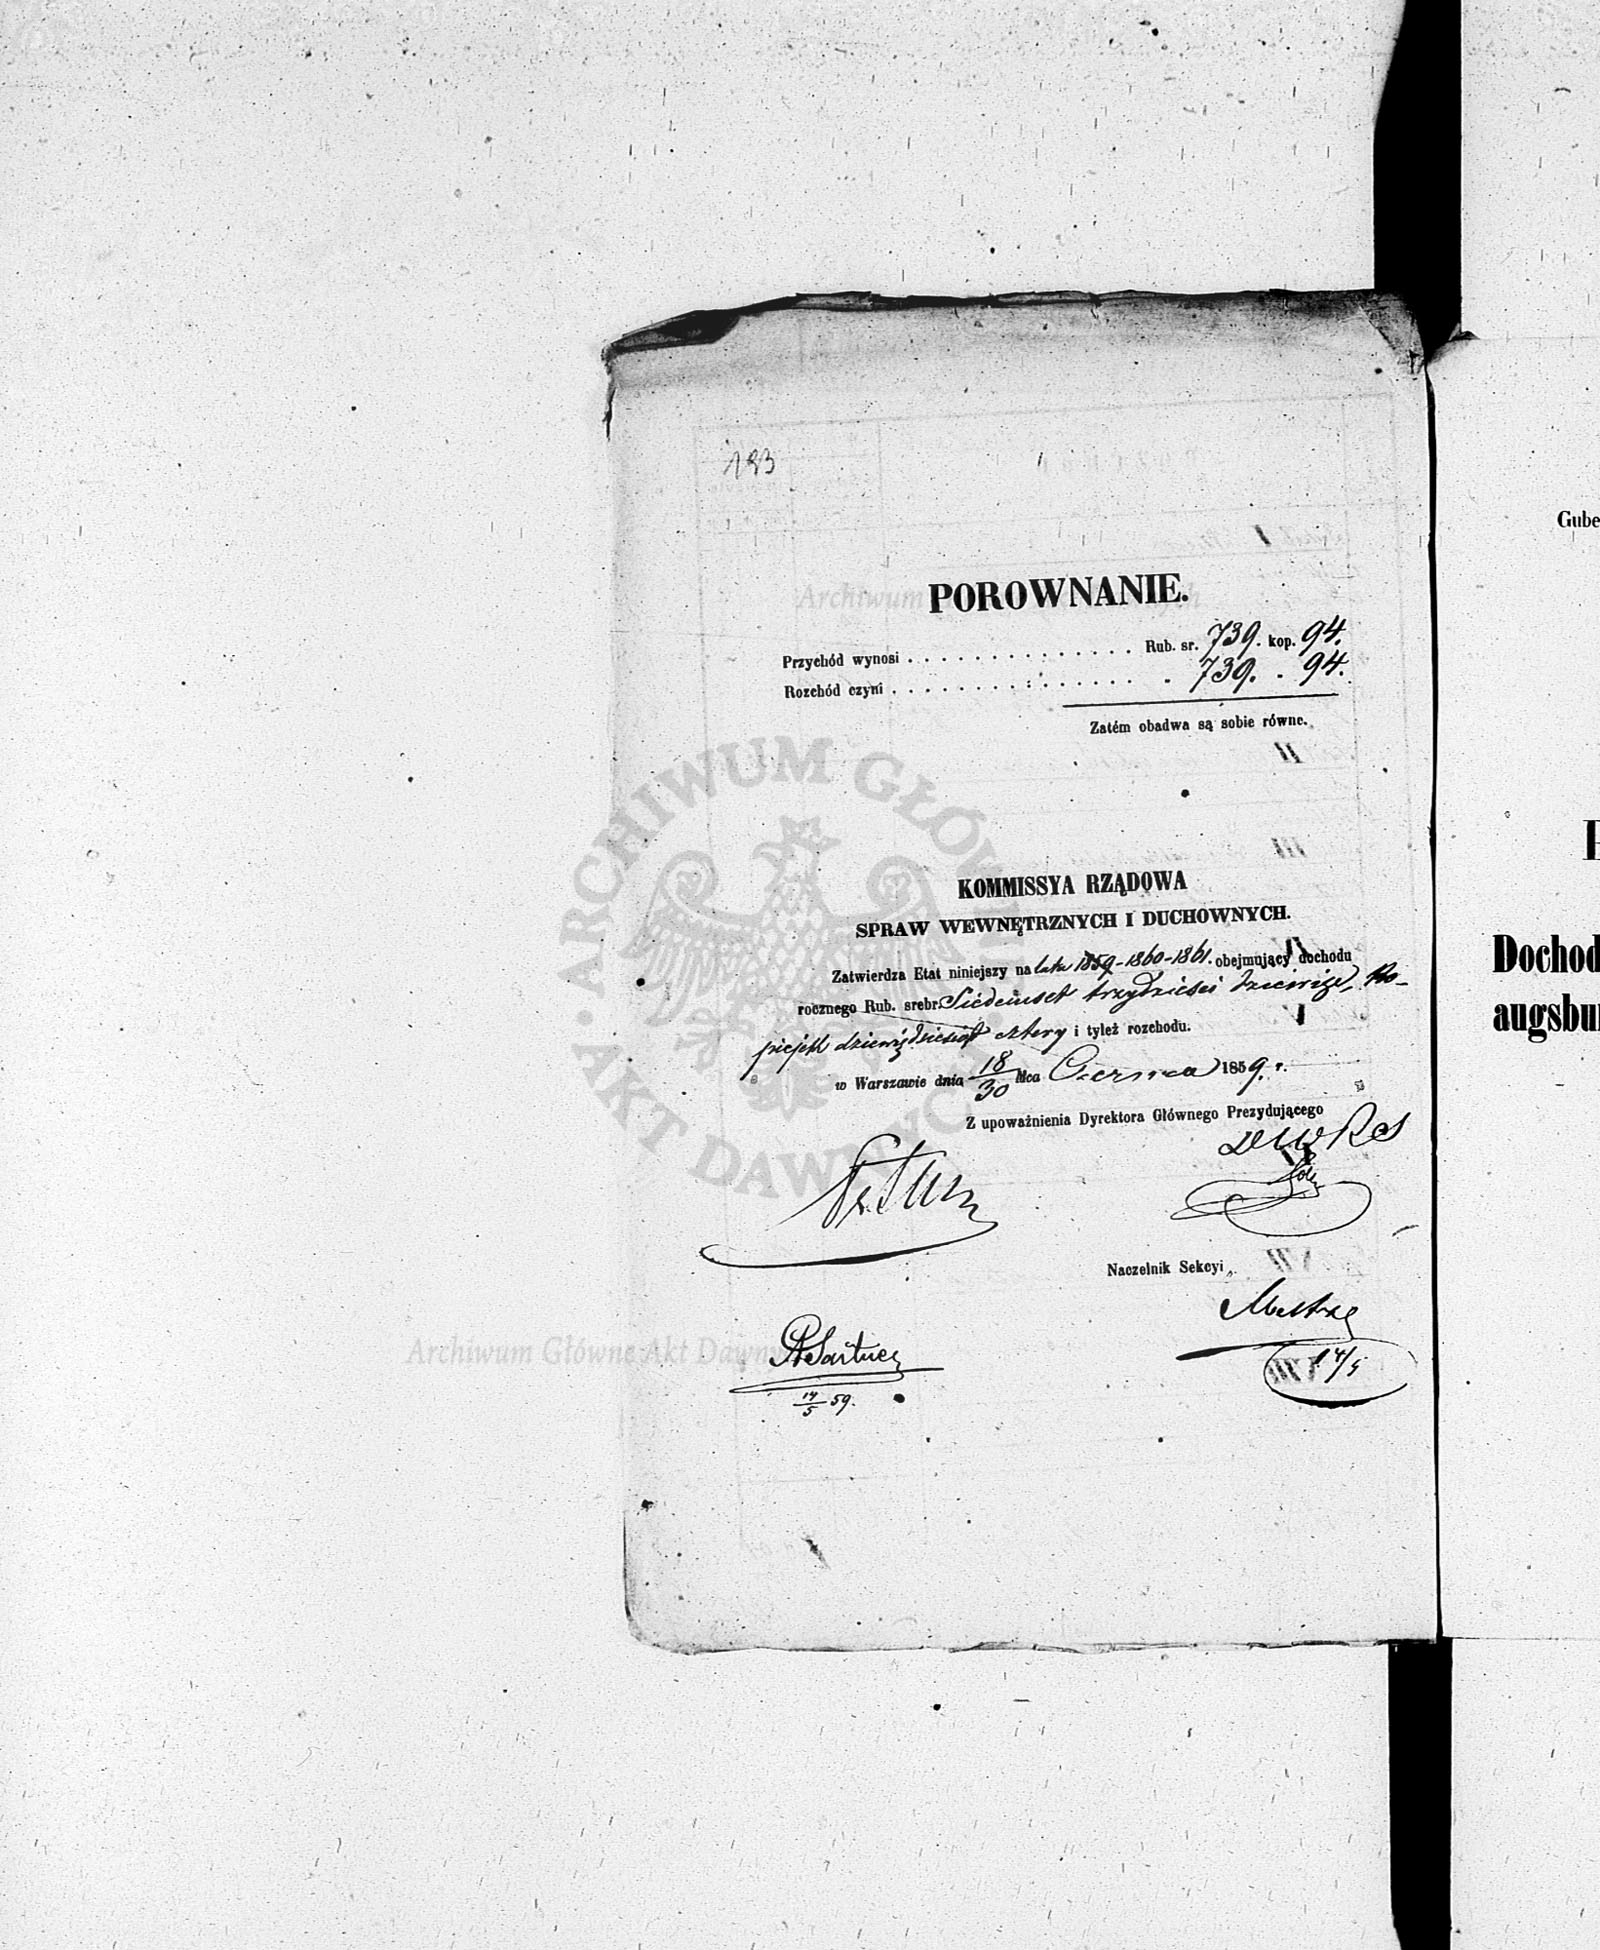 193
POROWNANIE.
Przychód wynosi . . . . . . . . . . . . . . Rub. sr. 739. kop. 94.
Rozchód czyni . . . . . . . . . . . . . . . . 739. . 94.
Zatém obadwa są sobie równe.
KOMMISSYA RZĄDOWA
SPRAW WEWNĘTRZNYCH I DUCHOWNYCH.
Zatwierdza Etat niniejszy na lata 1859-1860-1861. obejmujący dochodu
rocznego Rub. srebr. Siedemset trzydzieści dziewięć, ko-
piejek dziewięćdziesiąt cztery i tyleż rozchodu.
w Warszawie dnia 18/30 Mca Czerwca 1859. r.
Z upoważnienia Dyrektora Głównego Prezydującego
Naczelnik Sekcyi
14/5
14/5 59.
Gube
Dochod
augsbu
ARCHIWUM GŁÓWNE AKT DAWNYCH
Archiwum Główne Akt Dawnych